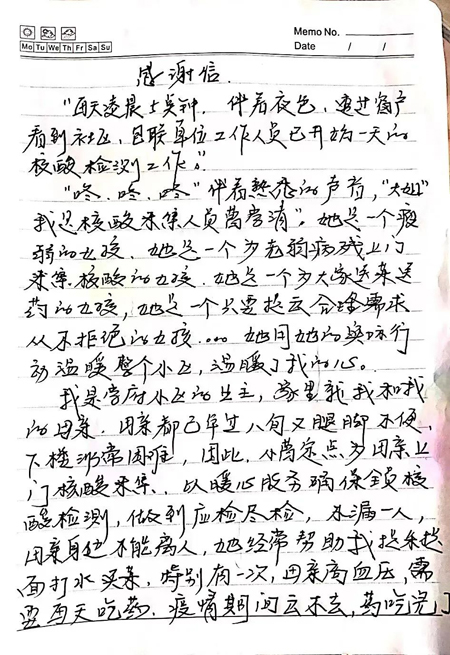 Memo No.
Mo Tu We Th Fr Sa Su
Date / /
感谢信.
"每天凌晨七点钟. 伴着夜色, 透过窗户
看到社区, 包联单位工作人员已开始一天的
核酸检测工作".
"咚. 咚. 咚" 伴着熟悉的声音, "大姐"
我是核酸采集人员 ". 她是一个瘦
弱的女孩. 她是一个为老弱病残上门
采集核酸的女孩. 她是一个为大家送菜送
药的女孩, 她是一个只要提出合理需求
从不拒绝的女孩.... 她用她的实际行
动温暖整个小区, 温暖了我的心。
我是 府小区的业主, 家里就我和我
的母亲. 母亲都已年过八旬又腿脚不便,
下楼非常困难, 因此, 小 定点为母亲上
门核酸采集. 以暖心服务确保全员核
酸检测, 做到应检尽检, 不漏一人,
母亲身边不能离人, 她经常帮助我提米提
面打水买菜. 特别有一次, 母亲高血压, 需
要每天吃药. 疫情期间出不去, 药吃完了